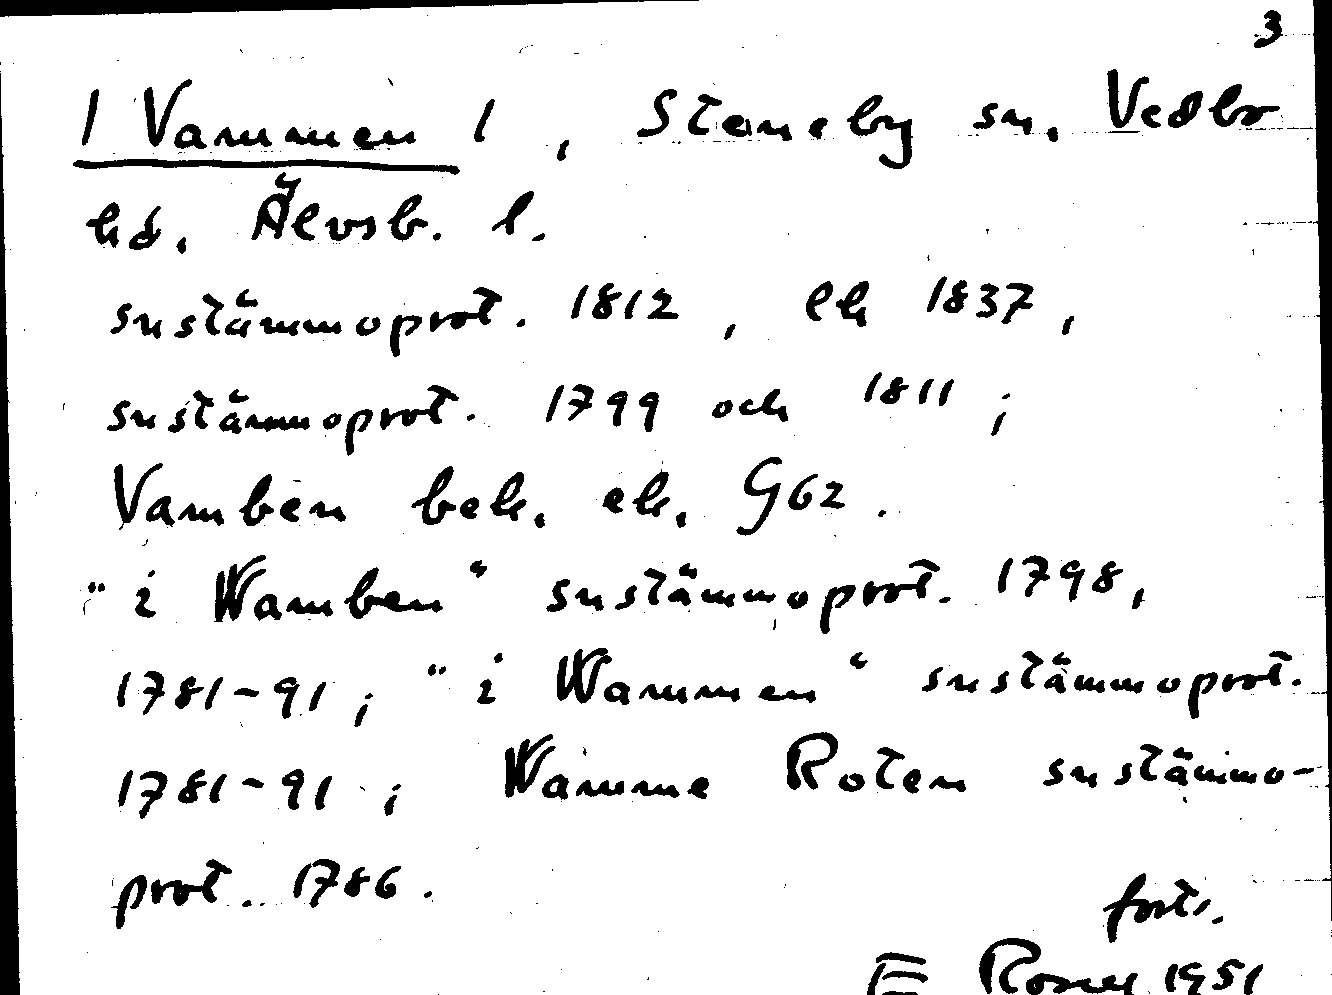 3
/ Vammen /, Steneby sn, Vedbo
hd, Älvsb. l.
snstämmoprot. 1812, lk 1837,
snstämmoprot. 1799 och 1811;
Vamben bek. ek. G62.
"i Wamben" snstämmoprot. 1798,
1781-91; "i Wammen" snstämmoprot.
1781-91; Wamme Roten snstämmo-
prot. 1786.
forts.
E 1951